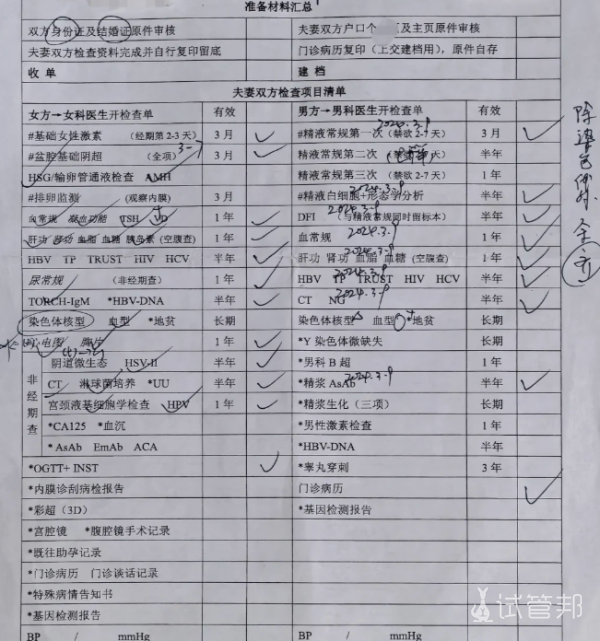 准备材料汇总
双方身份证及结婚证原件审核 夫妻双方户口个 及主页原件审核
夫妻双方检查资料完成并自行复印留底 门诊病历复印(上交建档用),原件自存
收 单 建 档
夫妻双方检查项目清单
女方→女科医生开检查单 有效 男方→男科医生开检查单 有效
#基础女性激素 (经期第2-3天) 3月 #精液常规第一次 (禁欲2-7天) 2024.3-9 3月
#盆腔基础阴超 (全项) 3月 精液常规第二次 半年
HSG/输卵管通液检查 AMH 精液常规第三次 (禁欲2-7天) 1年
#排卵监测 (观察内膜) 3月 #精液白细胞+形态学分析 2024.3-9 半年
血常规 凝血功能 TSH 1年 DFI (与精液常规同时留标本) 2024.3-9 半年
肝功 肾功 血脂 血糖 胰岛素 (空腹查) 1年 血常规 2024.3-9 1年
HBV TP TRUST HIV HCV 半年 肝功 肾功 血脂 血糖 (空腹查) 2024.3-9 1年
尿常规 (非经期查) 1年 HBV TP TRUST HIV HCV 2024.3-9 半年
TORCH-IgM *HBV-DNA 半年 CT NG 2024.3-9 半年
染色体核型 血型 *地贫 长期 染色体核型 血型 *地贫 长期
心电图 胸片 1年 *Y染色体微缺失 长期
非经期查
阴道微生态 HSV-II 半年 *男科B超 1年
CT 淋球菌培养 *UU 半年 *精浆AsAb 2024.3-9 半年
宫颈液基细胞学检查 HPV 1年 *精浆生化(三项) 长期
*CA125 *血沉 *男性激素检查 1年
*AsAb EmAb ACA *HBV-DNA 半年
*OGTT+ INST *睾丸穿刺 3年
*内膜诊刮病检报告 门诊病历
*彩超(3D) *基因检测报告
*宫腔镜 *腹腔镜手术记录
*既往助孕记录
*门诊病历 门诊谈话记录
*特殊病情告知书
*基因检测报告
BP / mmHg BP / mmHg
除染色体外,全齐
试管邦